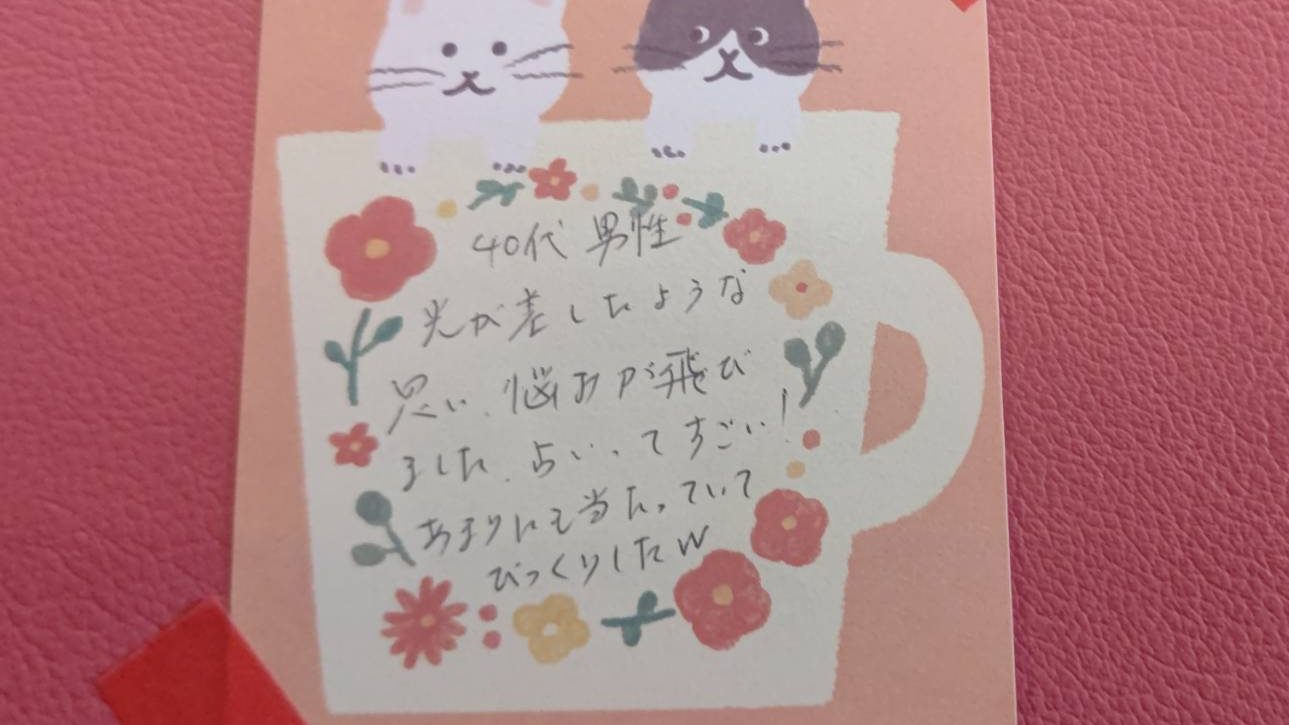 40代 男性
光が差したような
思い、悩みが飛び
ました、占いってすごい!
あまりにも当たっていて
びっくりしたw